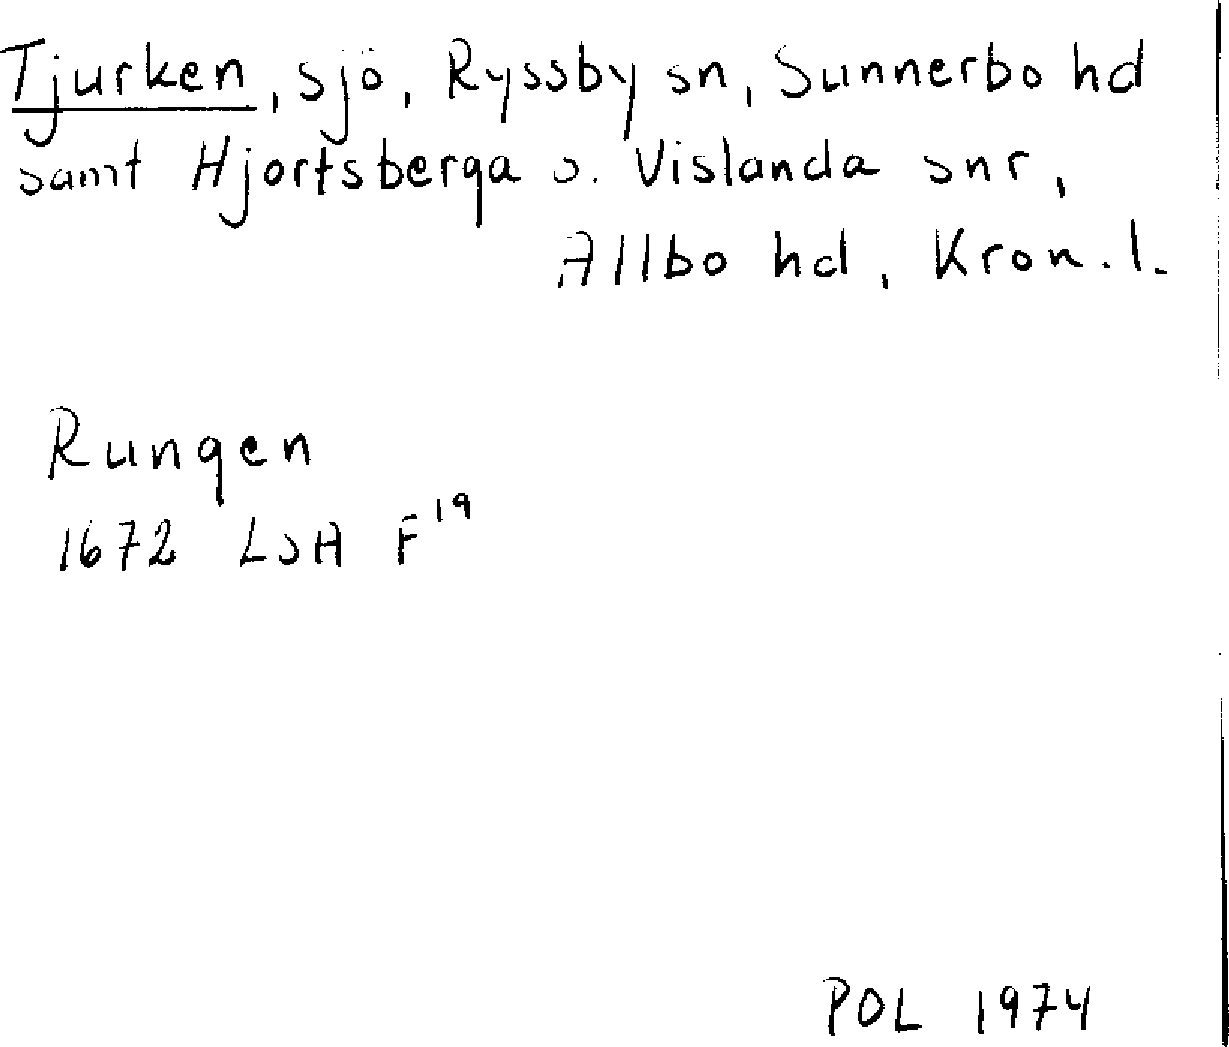 Tjurken, sjö, Ryssby sn, Sunnerbo hd
samt Hjortsberga o. Vislanda snr,
Allbo hd, Kron. l.
Rungen
1672 LSA F19
POL 1974